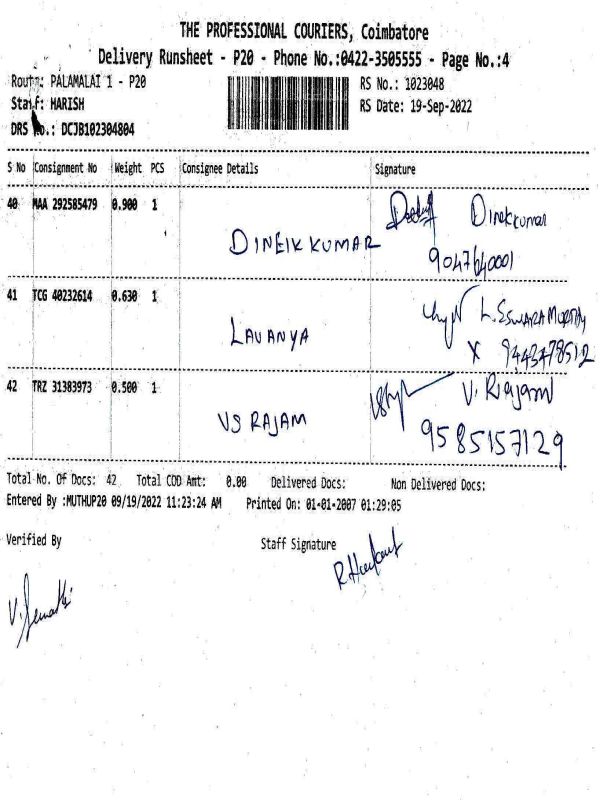 THE PROFESSIONAL COURIERS, Coimbatore
Delivery Runsheet - P20 - Phone No.:0422-3505555 - Page No.:4
Route: PALAMALAI 1 - P20
RS No.: 1023048
Staff: HARISH
RS Date: 19-Sep-2022
DRS No.: DCJB102304804
S No Consignment No Weight PCS Consignee Details Signature
40 MAA 292585479 0.900 1
Dinekkumar
DINEIK KUMAR
9047640001
41 TCG 40232614 0.630 1
L. ESWARA MURTHY
LAVANYA
X 9443478512
42 TRZ 31383973 0.500 1
V. Rajam
VS RAJAM
9585157129
Total No. Of Docs: 42 Total COD Amt: 0.00 Delivered Docs: Non Delivered Docs:
Entered By :MUTHUP20 09/19/2022 11:23:24 AM Printed On: 01-01-2007 01:29:05
Verified By Staff Signature